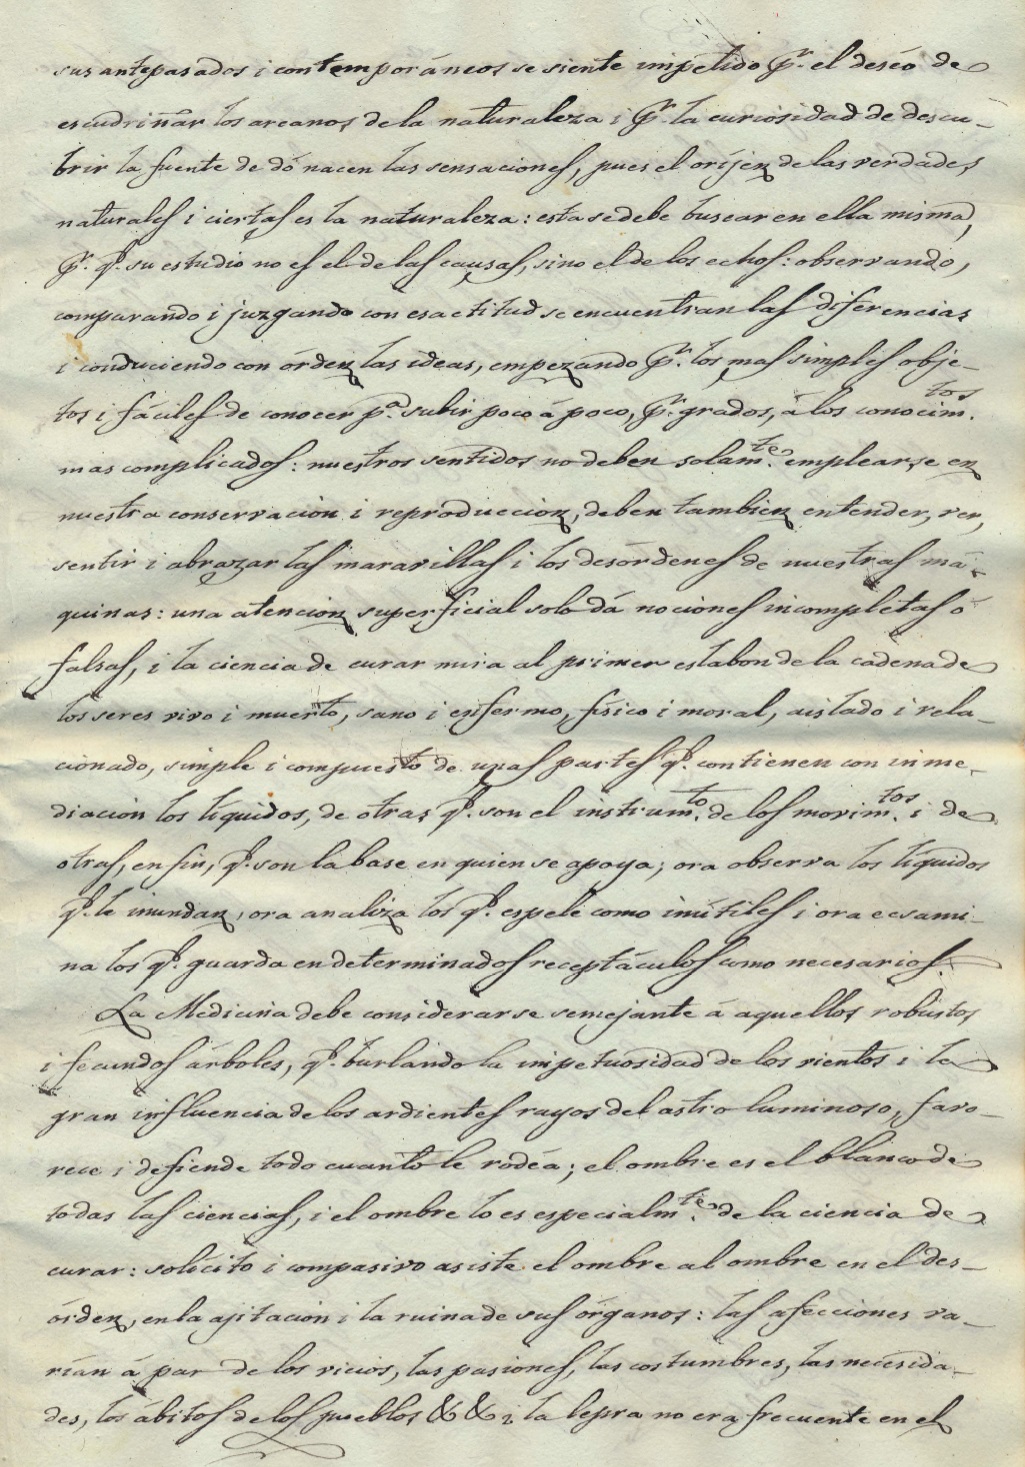 sus antepasados i contemporáneos se siente impelido pr. el deséo de
escudriñar los arcanos de la naturaleza i pr. la curiosidad de descu-
brir la fuente de dó nacen las sensaciones, pues el oríjen de las verdades
naturales i ciertas es la naturaleza: esta se debe buscar en ella misma,
pr. qe. su estudio no es el de las causas, sino el de los echos: observando,
comparando i juzgando con esactitud se encuentran las diferencias
i conduciendo con órden las ideas, empezando pr. los mas simples obje-
tos i fáciles de conocer pa. subir poco á poco, pr. grados, á los conocim.tos
mas complicados: nuestros sentidos no deben solam.te emplearse en
nuestra conservacion i reproduccion, deben tambien entender, ver,
sentir i abrazar las maravillas i los desórdenes de nuestras má-
quinas: una atencion superficial solo dá nociones incompletas ó
falsas, i la ciencia de curar mira al primer eslabon de la cadena de
los seres vivo i muerto, sano i enfermo, físico i moral, aislado i rela-
cionado, simple i compuesto de unas partes qe. contienen con inme-
diacion los líquidos, de otras qe. son el instrum.to de los movim.tos i de
otras, en fin, qe. son la base en quien se apoya; ora observa los líquidos
qe. le inundan, ora analiza los qe. espele como inútiles i ora ecsami-
na los qe. guarda en determinados receptáculos como necesarios.
La Medicina debe considerarse semejante á aquellos robustos
i fecundos árboles, qe. burlando la impetuosidad de los vientos i la
gran influencia de los ardientes rayos del astro luminoso, favo-
rece i defiende todo cuanto le rodéa; el ombre es el blanco de
todas las ciencias, i el ombre lo es especialm.te de la ciencia de
curar: solícito i compasivo asiste el ombre al ombre en el des-
órden, en la ajitacion i la ruina de sus órganos: las afecciones va-
rían á par de los vicios, las pasiones, las costumbres, las necesida-
des, los ábitos de los pueblos & & i la lepra no era frecuente en el